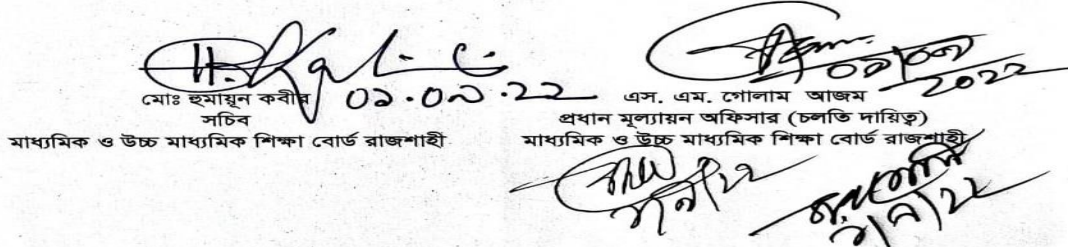 ০১.০৯.২২
মোঃ হুমায়ূন কবীর
সচিব
মাধ্যমিক ও উচ্চ মাধ্যমিক শিক্ষা বোর্ড রাজশাহী
২০২২
এস. এম. গোলাম আজম
প্রধান মূল্যায়ন অফিসার (চলতি দায়িত্ব)
মাধ্যমিক ও উচ্চ মাধ্যমিক শিক্ষা বোর্ড রাজশাহী